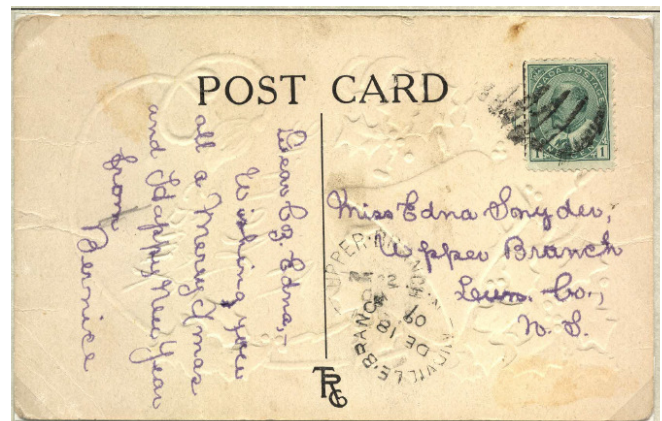 POST CARD
CANADA POSTAGE
1 1
Dear Co. Edna,-
Wishing you
all a Merry Xmas
and Happy New Year
from
Bernice
Miss Edna Snyder,
Upper Branch
Lun. Co.,
N. S.
UPPER BRANCH
DE 18
09
VILLE BRANCH
TRG